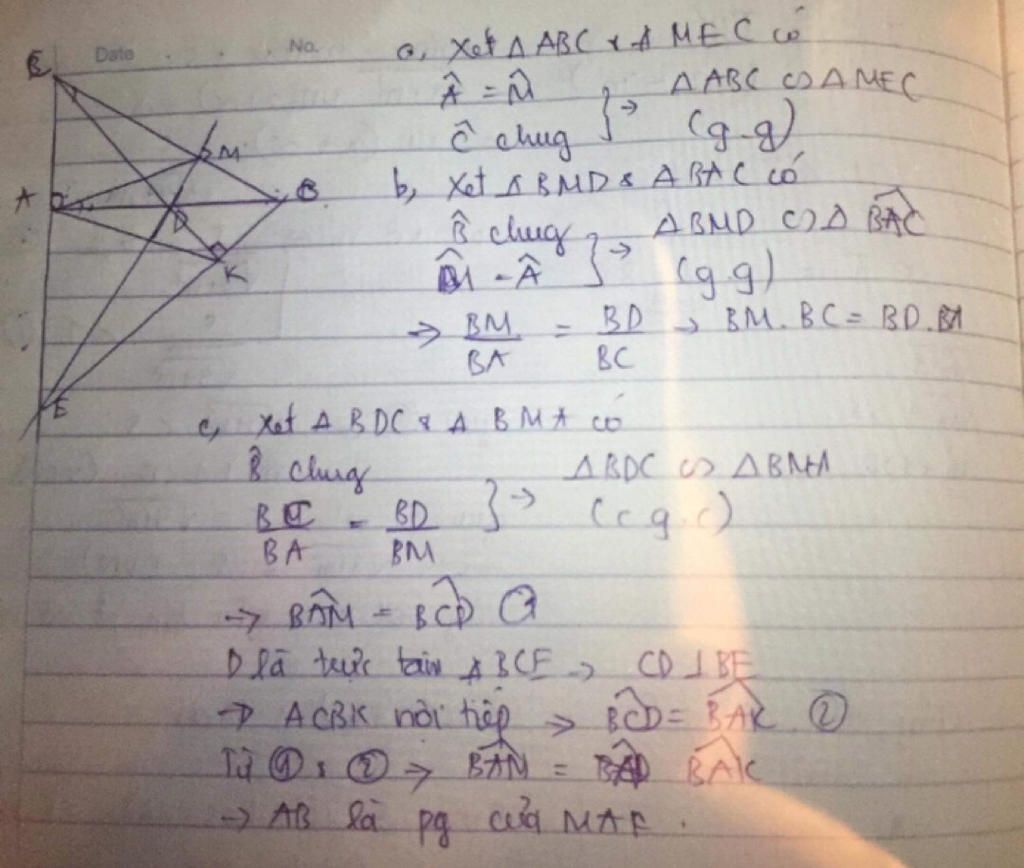 Date No.
C
M
A
B
D
K
E
a, Xét Δ ABC & Δ MEC có
Â = M̂
Ĉ chug } → Δ ABC ∽ Δ MEC
(g.g)
b, Xét Δ BMD & Δ BAC có
B̂ chug
M̂ = Â } → Δ BMD ∽ Δ BAC
(g g)
→ BM/BA = BD/BC → BM . BC = BD . BA
c, Xét Δ BDC & Δ BMA có
B̂ chug
BC/BA = BD/BM } → Δ BDC ∽ Δ BMA
(c g c)
→ BÂM = BĈD ①
D là trực tâm Δ BCE → CD ⊥ BE
→ ACBK nội tiếp → BĈD = BÂK ②
Từ ① & ② → BÂM = BÂK
→ AB là pg của MAK .